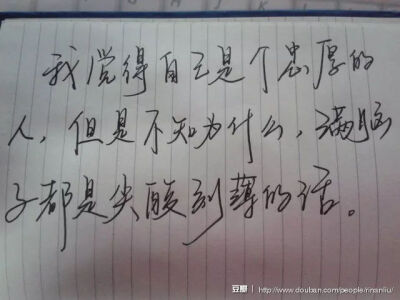 我觉得自己是个忠厚的
人，但是不知为什么，满脑
子都是尖酸刻薄的话。
豆瓣 http://www.douban.com/people/rinanliu/